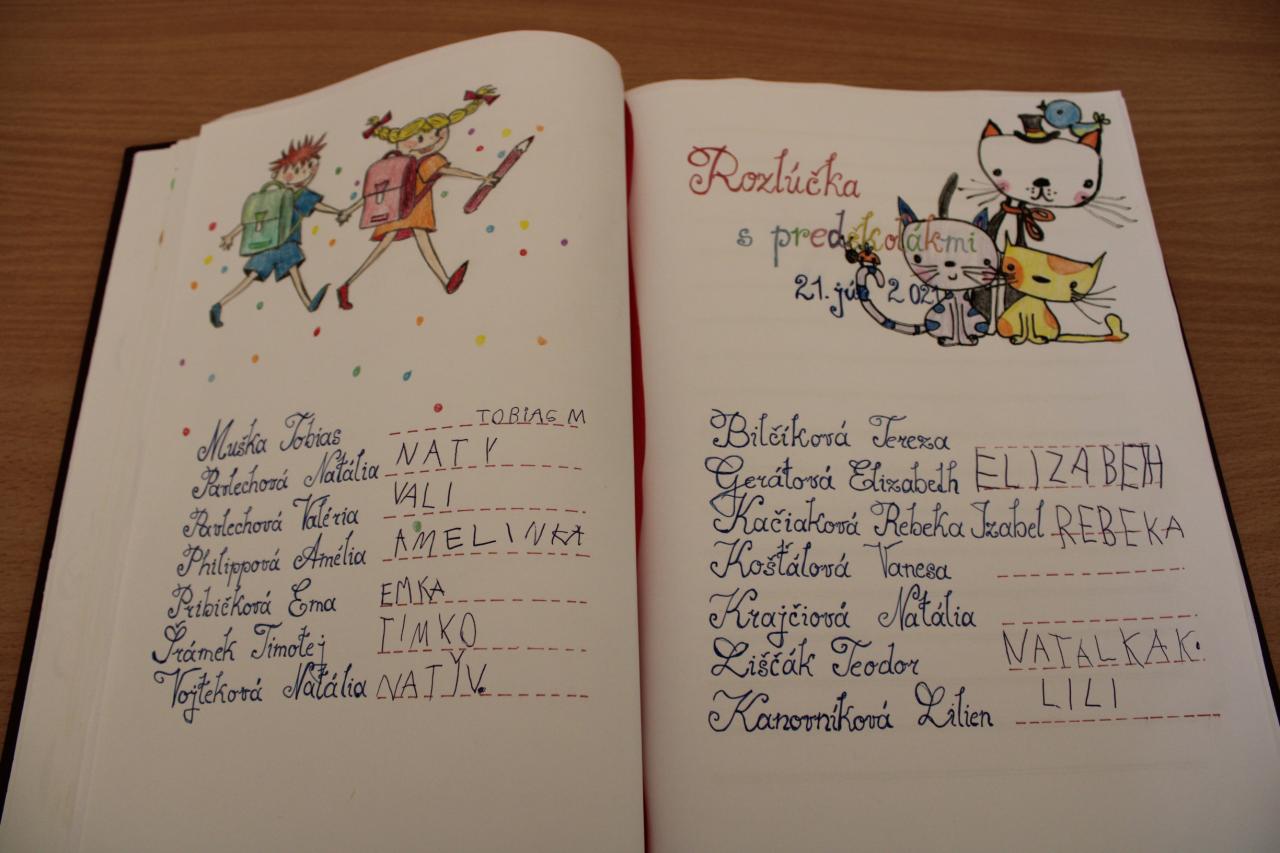 Muška Tobias TOBIAS M
Pavlechová Natália NATY
Pavlechová Valéria VALI
Philippová Amélia AMELINKA
Pribičková Ema EMKA
Šrámek Timotej TIMKO
Vojteková Natália NATY V.
Rozlúčka
s predškolákmi
21. jún 2021
Bilčíková Tereza
Gerátová Elizabeth ELIZABETH
Kačiaková Rebeka Izabel REBEKA
Koštálová Vanesa
Krajčiová Natália
Liščák Teodor NATALKA K.
Kanovníková Lilien LILI